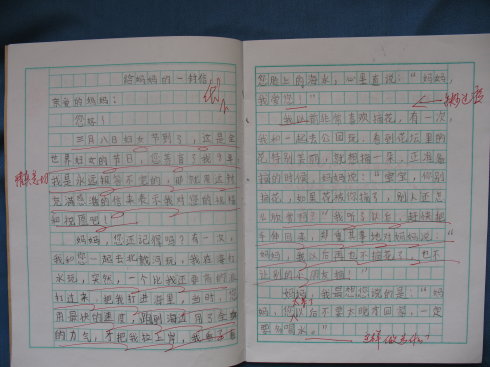 给妈妈的一封信
优
亲爱的妈妈：
您好！
三月八日妇女节到了，这是全
世界妇女的节日，您养育了我9年，
我是永远报答不完的，那就用这封
充满感激的信来表示我对您的祝福
和拥抱吧！
妈妈，您还记得吗？有一次，
我和您一起去北戴河玩，我在海边
水玩，突然，一个比我还高的海
打过来，把我打进海里，当时，您
用最快的速度，跑到海边用了全身
的力气，才把我拉上岸，我看
您脸上的海水，心里直说：“妈妈，
我爱您！”
我以前非常喜欢摘花，有一次，
我和一起去公园玩，看到花坛里的
花特别美丽，就想摘一朵，正准备
摘的时候，妈妈说：“宝宝，你别
摘花，如果花被你摘了，别人还怎
么欣赏吗？”我听了以后，赶快把
手伸回来，郑重其事地对妈妈说：“
妈妈，我以后再也不摘花了，也不
让别的小朋友摘！”
妈妈，我要想您说的是：“妈
妈，您以后不要太晚才回家，一定
要多喝水。”